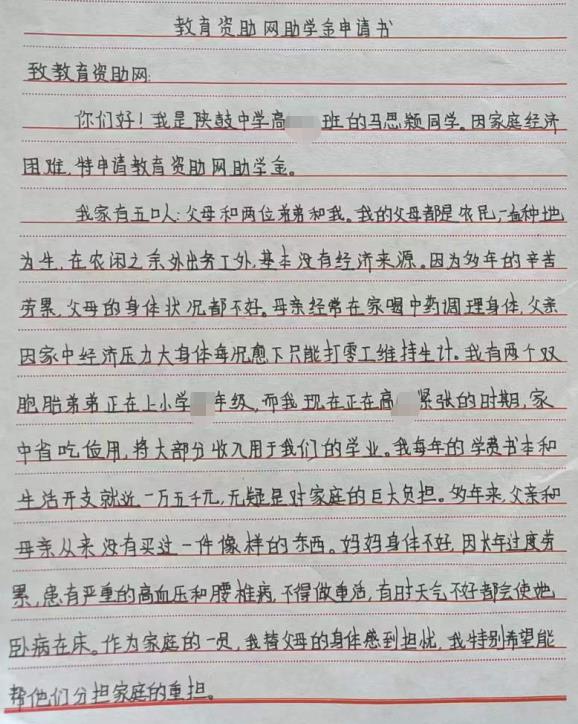 教育资助网助学金申请书
致教育资助网:
你们好!我是陕鼓中学高班的马思颖同学。因家庭经济
困难,特申请教育资助网助学金。
我家有五口人:父母和两位弟弟和我。我的父母都是农民,一直种地
为生,在农闲之余外出务工外,基本没有经济来源。因为多年的辛苦
劳累,父母的身体状况都不好。母亲经常在家喝中药调理身体,父亲
因家中经济压力大身体每况愈下只能打零工维持生计。我有两个双
胞胎弟弟正在上小学年级,而我现在正在高紧张的时期,家
中省吃俭用,将大部分收入用于我们的学业。我每年的学费书本和
生活开支就近一万五千元,无疑是对家庭的巨大负担。多年来,父亲和
母亲从来没有买过一件像样的东西。妈妈身体不好,因长年过度劳
累,患有严重的高血压和腰椎病,不得做重活,有时天气不好都会使她
卧病在床。作为家庭的一员,我替父母的身体感到担忧,我特别希望能
帮他们分担家庭的重担。